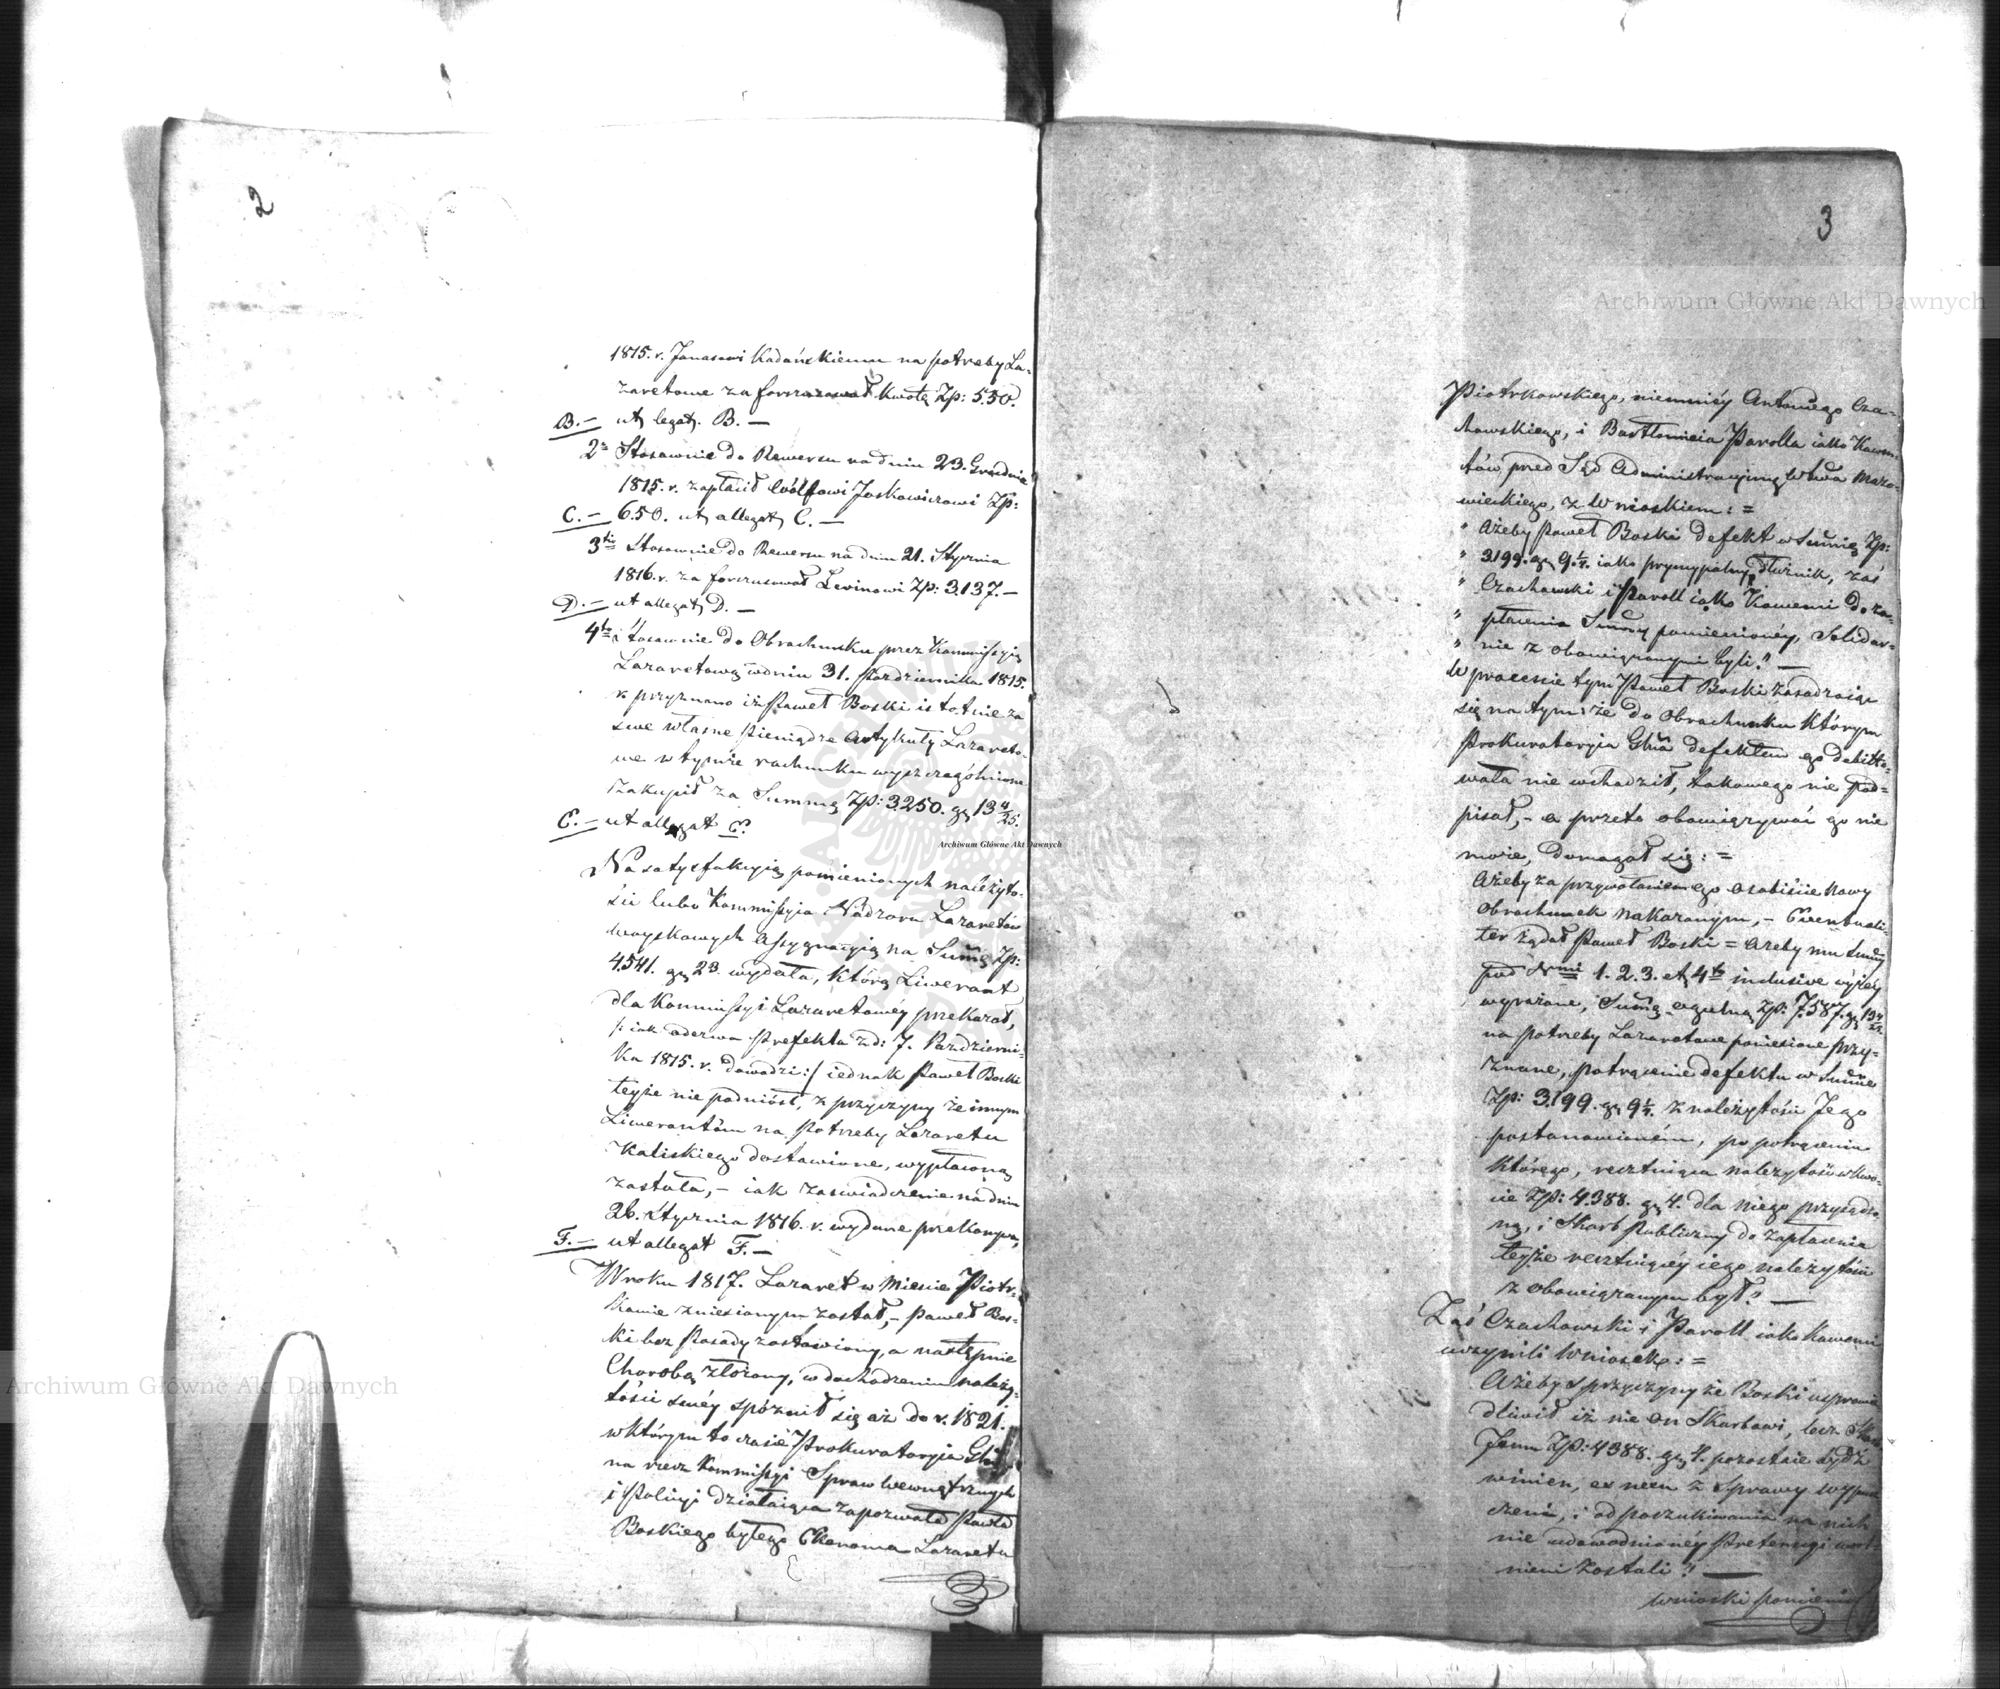 2
1815. r. Janasowi Kadańskiemu na potrzeby La-
zaretowe zaforszusował kwotę Zp: 550.
B. — ut legat. B. —
2o Stosownie do Rewersu na dniu 23. Grudnia
1815. r. zapłacił Wólfowi Joskowiczowi Zp:
C. — 650. ut allegat C. —
3tio Stosownie do Rewersu na dniu 21. Stycznia
1816. r. zaforszusował Lewinowi Zp: 3.137. —
D. — ut allegat D. —
4to Stosownie do Obrachunku przez Kommissyią
Lazaretową w dniu 31. Października 1815.
r. przyznano iż Paweł Boski istotnie za
swe własne pieniądze Artykuły Lazareto-
we w tymże rachunku wyszczegółnione
zakupił za Summę Zp: 3250. gr 13 4/25.
E. — ut allegat E.
Na satysfakcyią pomienionych należyto-
ści lubo Kommissyia Nadzoru Lazaretów
woyskowych Assygnacyią na Summę Zp:
4541. gr 23. wydała, którą Liwerant
dla Kommissyi Lazaretowéy przekazał,
/: iak odezwa Prefekta z d: 7. Październi-
ka 1815. r. dowodzi :/ iednak Paweł Boski
teyże nie podniósł, z przyczyny że innym
Liwerantóm na potrzeby Lazaretu
Kaliskiego dostawione, wypłaconą
została, — iak zaświadczenie na dniu
26. Stycznia 1816. r. wydane przekonywa,
F. — ut allegat F. —
W roku 1817. Lazaret w Mieście Piotr-
kowie zniesionym został, — Paweł Bos-
ki bez Posady zostawiony, a następnie
Chorobą złożony, w dochodzeniu należy-
tości swéy spóźnił się aż do r. 1821.
w którym to czasie Prokuratoryia Głów:
na rzecz Kommissyi Spraw Wewnętrznych
i Policyi działaiąca zapozwała Pawła
Boskiego byłego Ekonoma Lazaretu
3
Piotrkowskiego, niemniéy Antoniego Cza-
chowskiego, i Bartłomieia Parolla iako Kawen-
tów przed Sąd Administracyiny Wtwa Mazo-
wieckiego, z Wnioskiem: =
" Ażeby Paweł Boski defekt w Summie Zp:
" 3199. gr 9 1/2. iako pryncypalny dłużnik, zaś
" Czachowski i Paroll iako Kawenci do za-
" płacenia Summy pomienionéy, Solidar-
" nie z obowiązanymi byli." —
W processie tym Paweł Boski zasadzaiąc
się na tym: że do obrachunku którym
Prokuratoryia Głna defektem go debito-
wała nie wchodził, takowego nie pod-
pisał, — a przeto obowiązywać go nie
może, domagał się: =
Ażeby za przywołaniem go osobiście Nowy
Obrachunek nakazanym, — Eventuali-
ter żądał Paweł Boski = ażeby mu Summy
pod Nrmi 1. 2. 3. et 4to inclusive wyżey
wyrażone, Summę ogulną Zp: 7.587. gr 13 4/25.
na potrzeby Lazaretowe poniesione przy-
znane, potrącenie defektu w Summie
Zp: 3.199. gr 9 1/2. z należytości Jego
postanowieném, po potrąceniu
którego, resztuiąca należytość w kwo-
cie Zp: 4388. gr 4. dla niego przysądzo-
ną, i Skarb Publiczny do zapłacenia
teyże resztuiącéy iego należytości
z obowiązanym był." —
Zaś Czachowski i Paroll iako Kawenci
uczynili Wniosek: =
Ażeby z przyczyny że Boski usprawie-
dliwił iż nie on Skarbowi, lecz Skarb
Jemu Zp: 4388. gr 4. pozostaie bydź
winien, ex nexu z Sprawy wypusz-
czeni, i od poszukiwania na nich
nie udowodnionéy Pretensyi uwol-
nieni zostali." —
Wnioski pomienio
Archiwum Główne Akt Dawnych
Archiwum Główne Akt Dawnych
Archiwum Główne Akt Dawnych